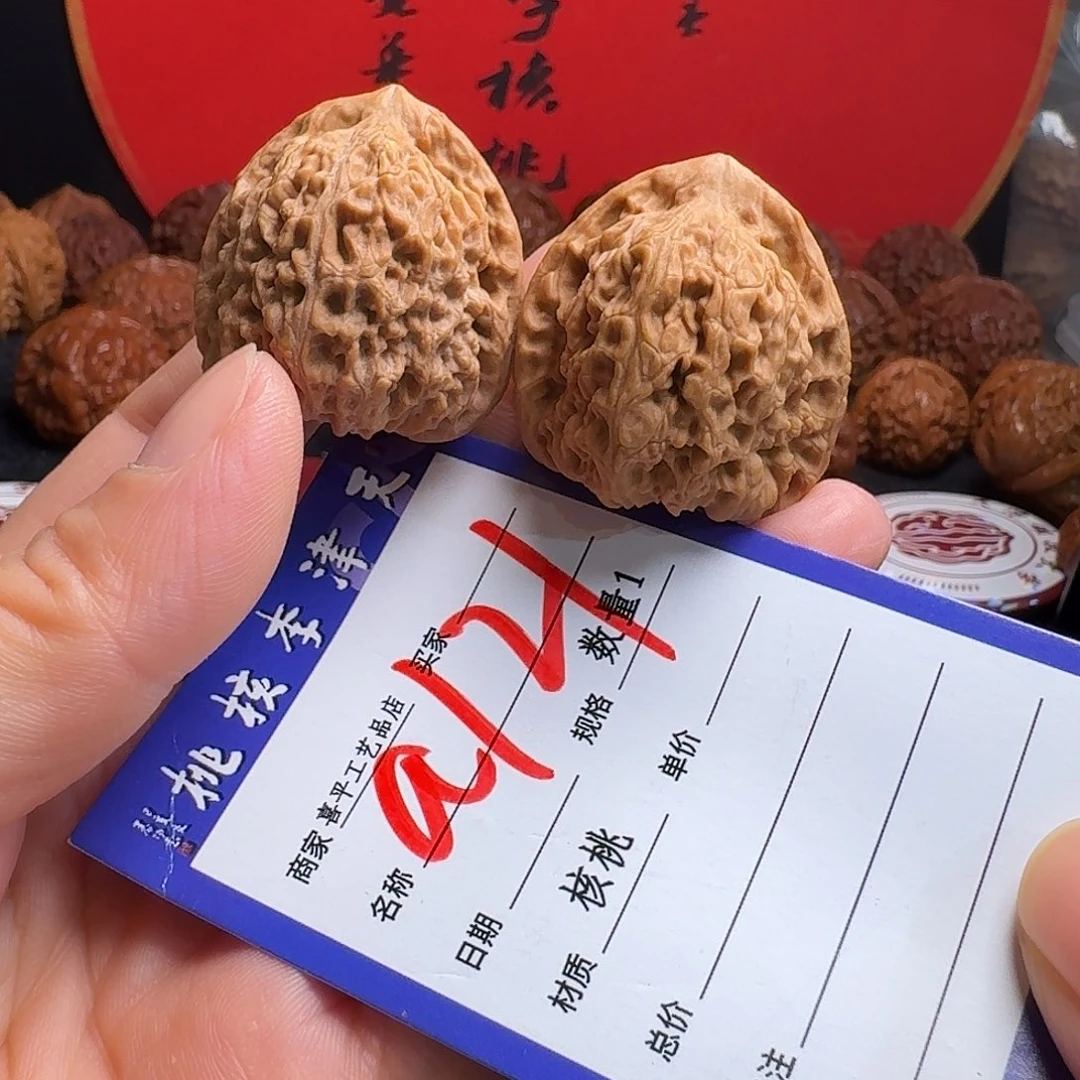 核桃
天津李核桃
商家 喜平工艺品店 买家
名称 a124 数量 1
日期 规格
材质 核桃 单价
总价
注